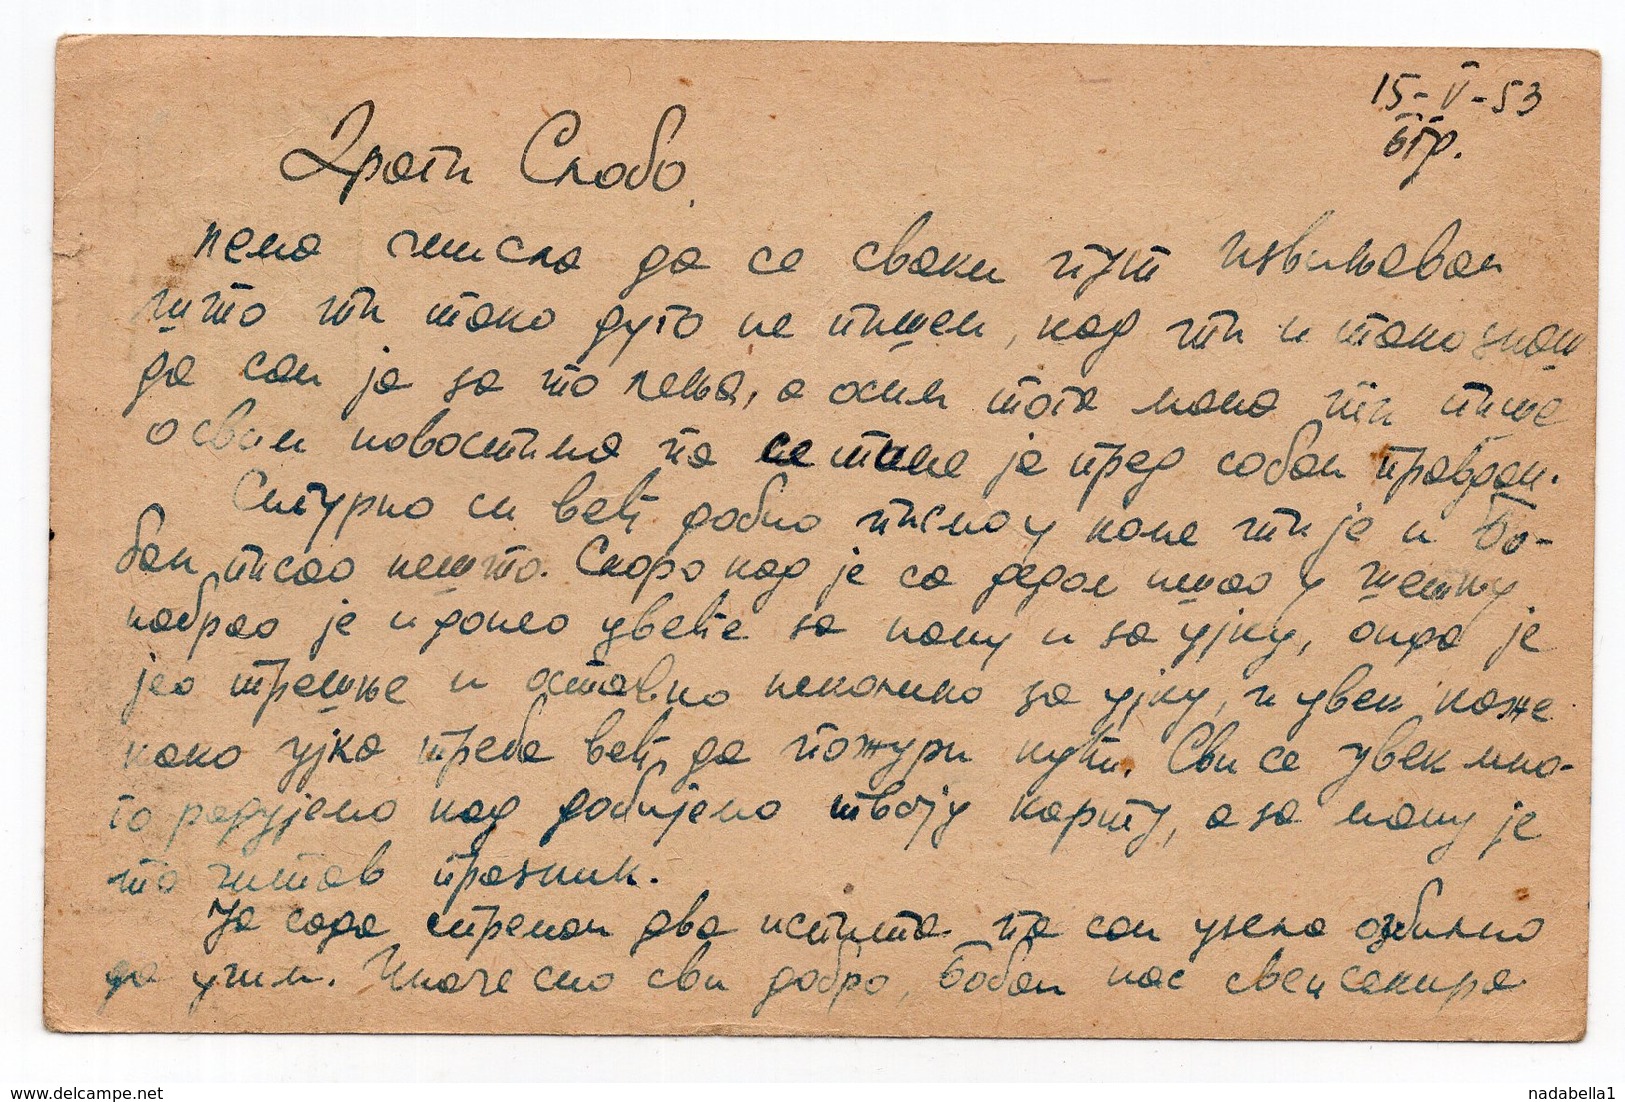 15-V-53
Бгр.
Драги Слобо,
нема смисла да се сваки пут извињавам
што ти тако дуго не пишем, кад ти и тако знаш
да сам ја за то лења, а осим тога мама ти пише
о свим новостима па се тиме ја пред собом правдам.
Сигурно си већ добио писмо у коме ти је и Бо-
бан писао нешто. Скоро кад је са дедом ишао у шетњу
набрао је и донео цвеће за маму и за ујку, онда је
јео трешње и оставио неколико за ујку, и увек каже
како ујка треба већ да пожури кући. Сви се увек мно-
го радујемо кад добијемо твоју карту, а за маму је
то читав празник.
Ја сада спремам два испита па сам узела озбиљно
да учим. Иначе смо сви добро, Бобан нас све секира
nadabella1